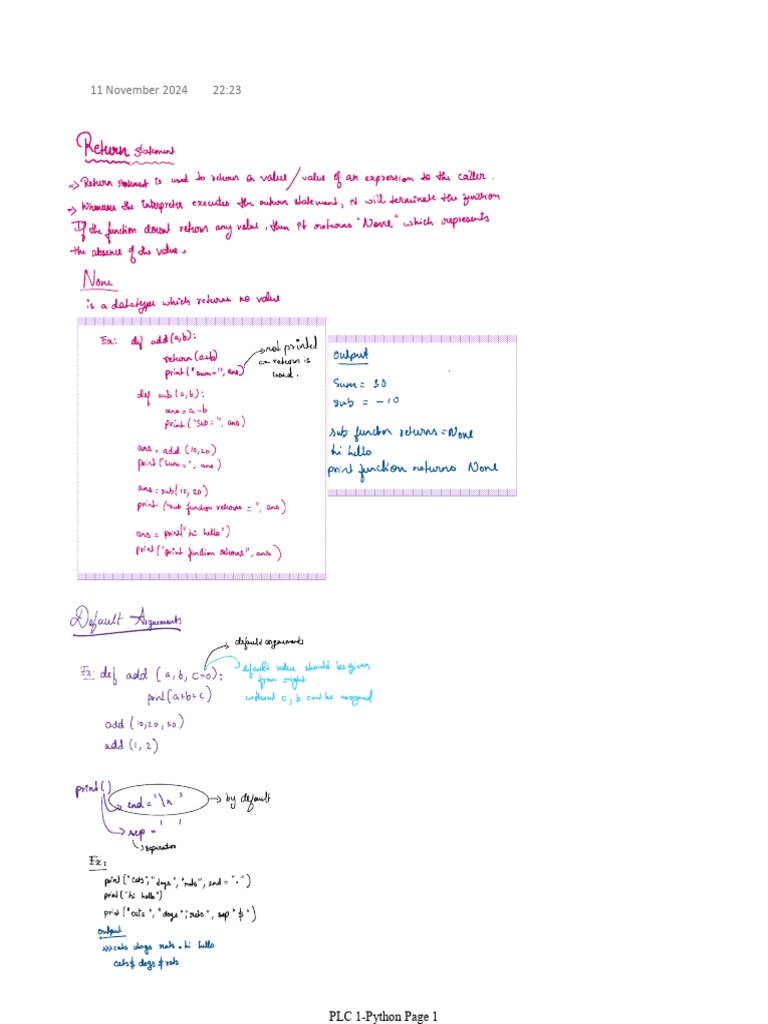 11 November 2024 22:23
Return Statement
→ Return statement is used to return a value/value of an expression to the caller.
→ Whenever the interpreter executes the return statement, it will terminate the function
If the function doesnt return any value, then it returns "None" which represents
the absence of the value.
None
is a datatype which returns no value
Ex: def add(a,b):
return(a+b)
print("sum=", ans)
→ not printed
cz return is
used.
def sub(a,b):
ans=a-b
print("Sub=", ans)
ans = add (10,20)
print("sum=", ans)
ans=sub(10, 20)
print ("sub function returns = ", ans)
ans = print("hi hello")
print("print function returns", ans)
Output
Sum = 30
sub = -10
sub function returns = None
hi hello
print function returns None
Default Arguments
default arguments
Ex: def add (a, b, c=0):
default value should be given
from right
print(a+b+c)
without c, b cant be assigned
add (10,20,30)
add (1, 2)
print()
end = '\n'
→ by default
sep = ' '
separator
Ex:
print("cats", "dogs", "rats", end = ".")
print("hi hello")
print("cats", "dogs", "rats", sep "$")
output
>>>cats dogs rats.hi hello
cats$ dogs $ rats
PLC 1-Python Page 1